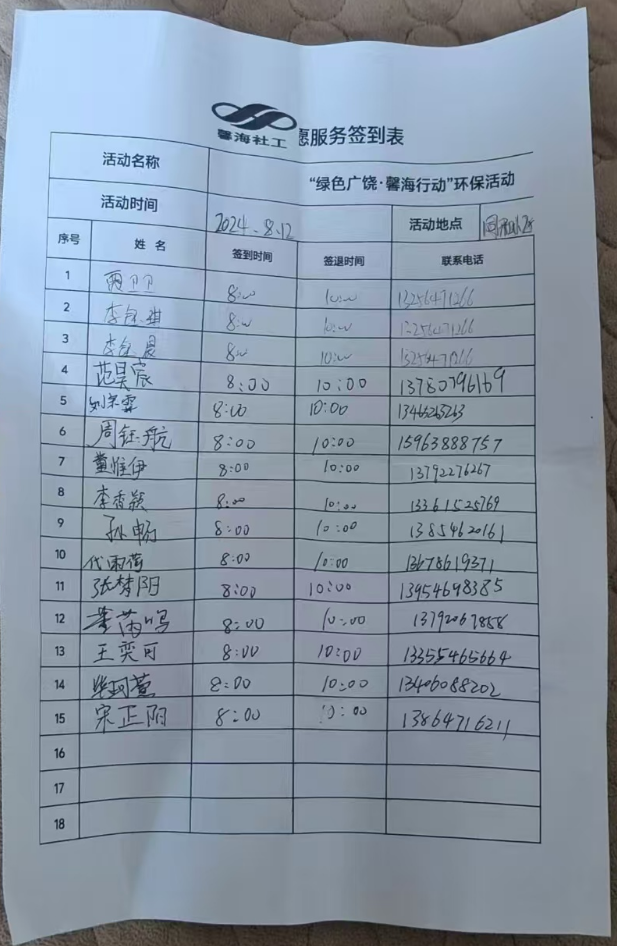 馨海社工
愿服务签到表
活动名称 "绿色广饶·馨海行动"环保活动
活动时间 2024.8.12 活动地点
序号 姓名 签到时间 签退时间 联系电话
1 8:00 10:00 13256471266
2 李钰琪 8:00 10:00 13256471266
3 李钰晨 8:00 10:00 13256471266
4 范昊宸 8:00 10:00 13780796169
5 8:00 10:00
6 周钰航 8:00 10:00 15963888757
7 董惟伊 8:00 10:00 13792276267
8 李香颖 8:00 10:00 13361525769
9 孙畅 8:00 10:00 13854620161
10 代雨荷 8:00 10:00 13678619371
11 张梦阳 8:00 10:00 13954698385
12 8:00 10:00 13792067858
13 王奕可 8:00 10:00 13355465664
14 8:00 10:00 13406088202
15 宋正阳 8:00 10:00 13864716211
16
17
18